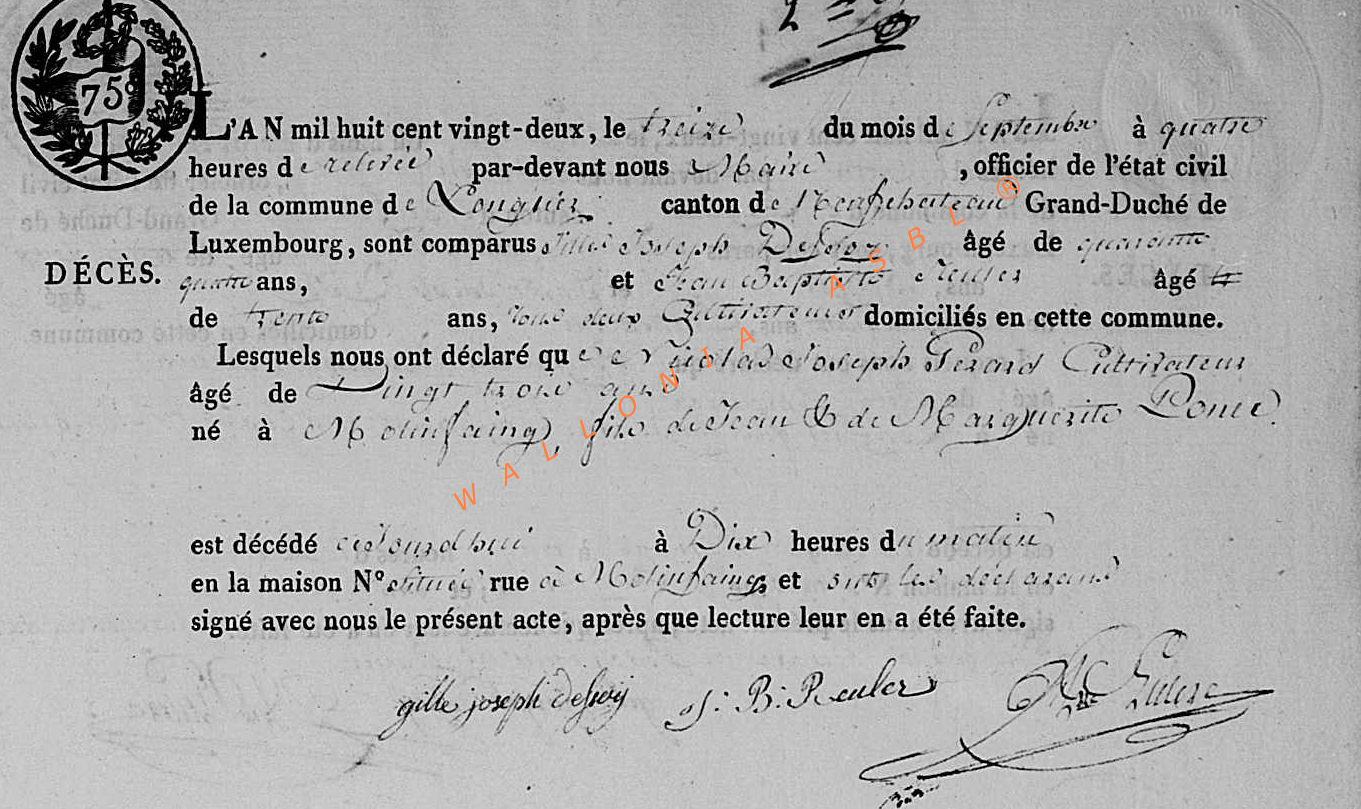 2
75c
L'AN mil huit cent vingt-deux, le treize du mois de Septembre à quatre
heures de relevée par-devant nous Maire, officier de l'état civil
de la commune de Longlier canton de Neufchateau Grand-Duché de
Luxembourg, sont comparus Gille Joseph Defoy âgé de quarante
DÉCÈS.
quatre ans, et Jean Baptiste Reuler âgé
de trente ans, tous deux Cultivateurs domiciliés en cette commune.
Lesquels nous ont déclaré que Nicolas Joseph Pierard Cultivateur
âgé de Vingt trois ans
né à Molinfaing, fils de Jean & de Marguerite Poncé
est décédé aujourd'hui à Dix heures du matin
en la maison N° située rue à Molinfaing et les déclarans
signé avec nous le présent acte, après que lecture leur en a été faite.
gille joseph defoy J: B: Reuler
WALLONIA ASBL ®